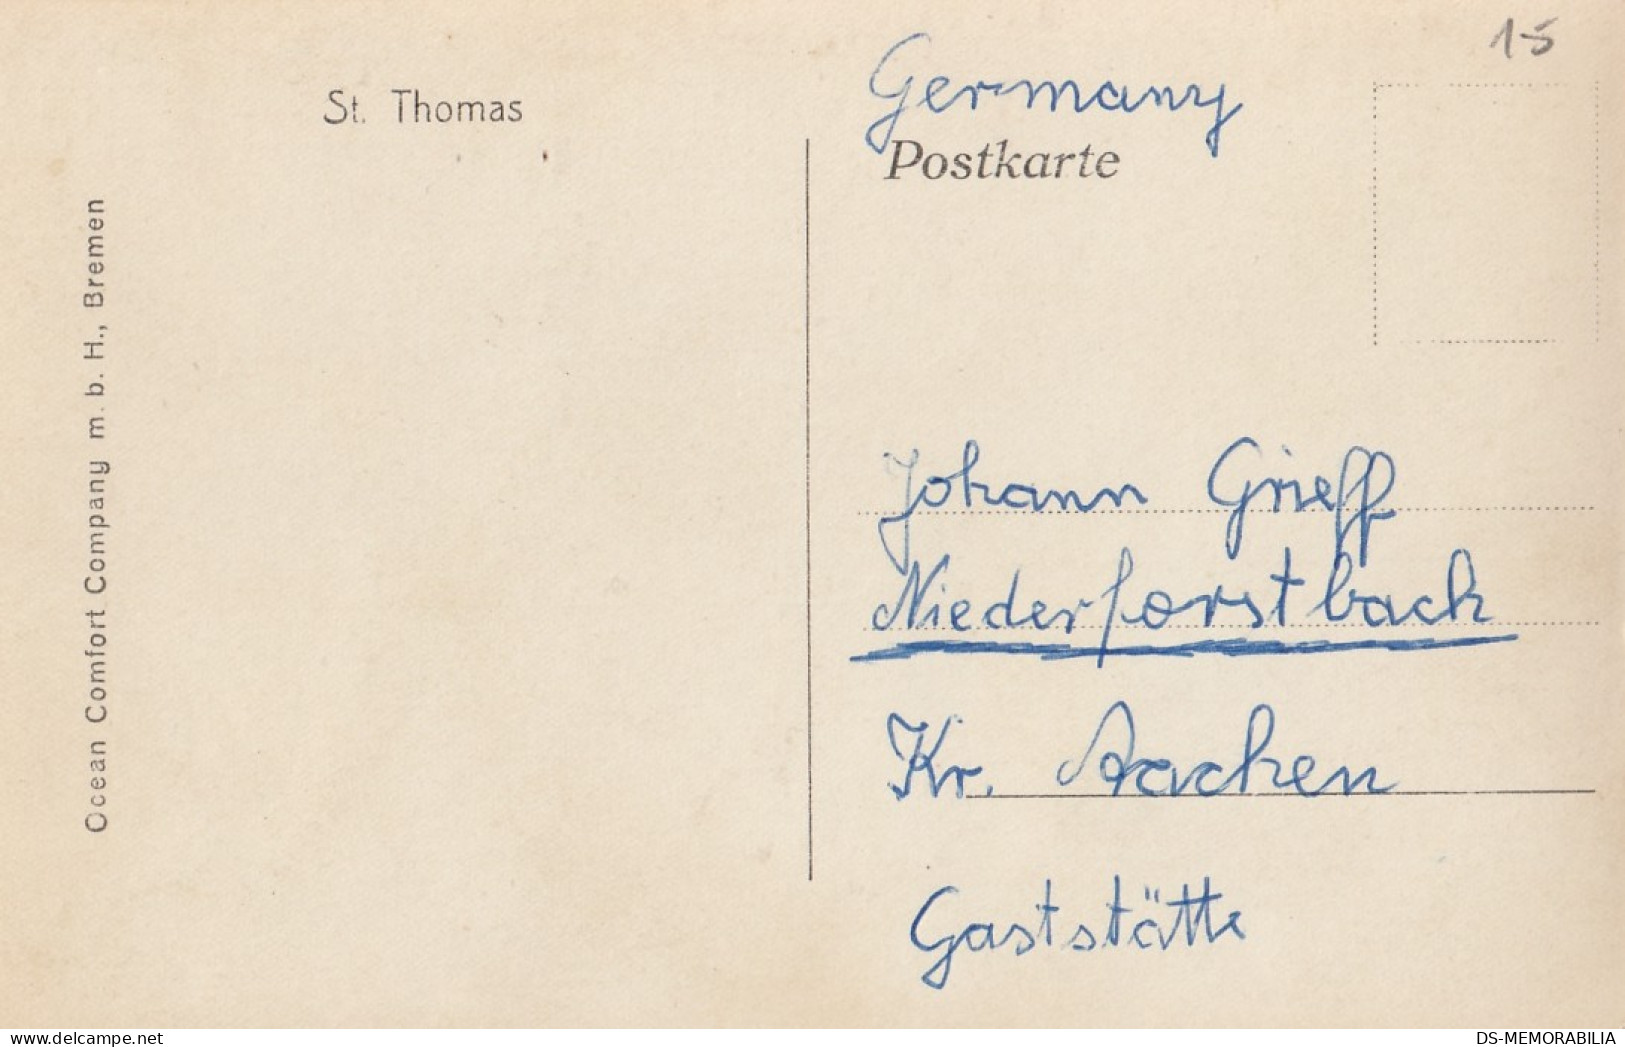 15
Germany
St. Thomas
Postkarte
Ocean Comfort Company m. b. H., Bremen
Johann Grieff
Niederforstbach
Kr. Aachen
Gaststätte
www.delcampe.net
DS-MEMORABILIA